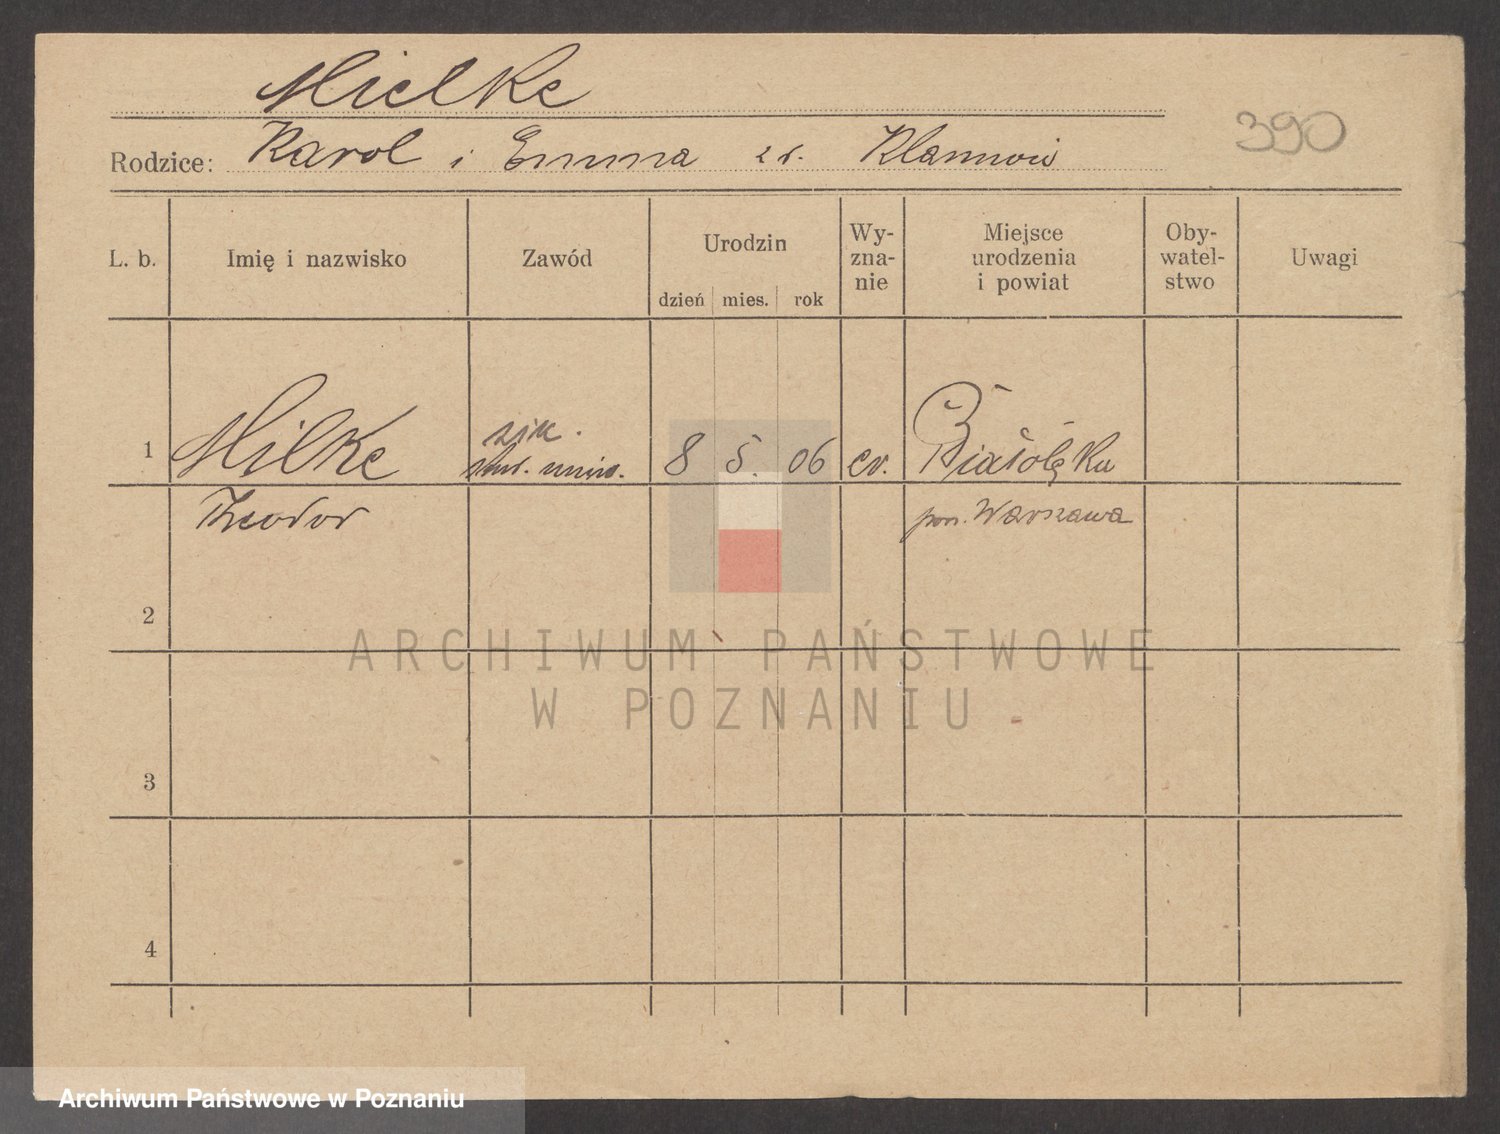 Mielke
390
Rodzice: Karol i Emma z d.
L. b.
Imię i nazwisko
Zawód
Urodzin
dzień mies. rok
Wy-
zna-
nie
Miejsce
urodzenia
i powiat
Oby-
watel-
stwo
Uwagi
1 Milke
Theodor
stud. uniw.
8 5. 06
ev.
Białołęka
pow. Warszawa
2
3
4
ARCHIWUM PAŃSTWOWE
W POZNANIU
Archiwum Państwowe w Poznaniu